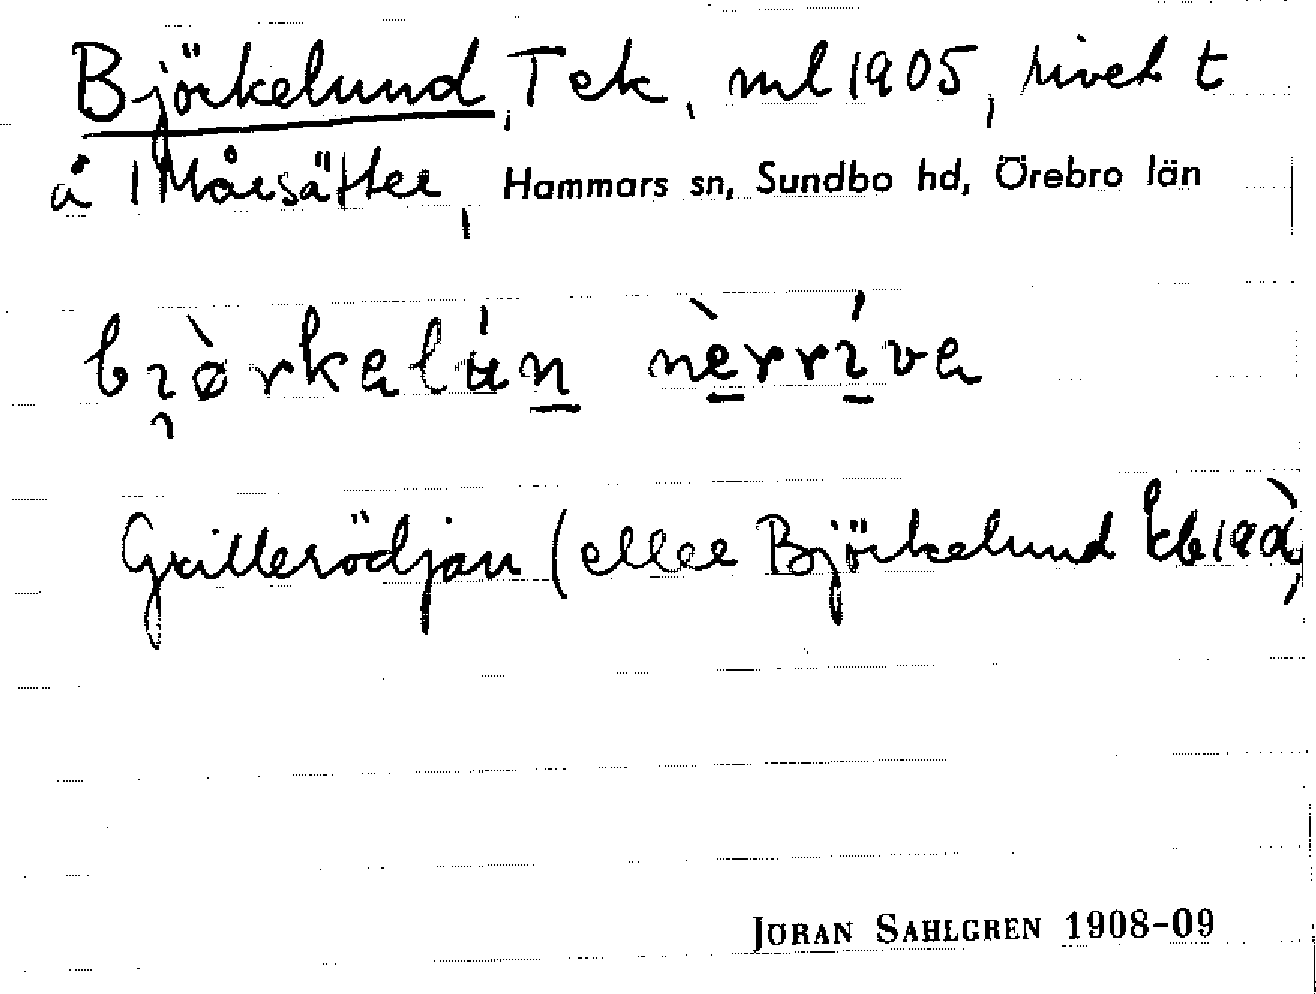 Björkelund, Tek, ml 1905, rivet t
å 1 Mårsätter, Hammars sn, Sundbo hd, Örebro län
bi̯ø̀rkalún nèrríva
Grillerödjan (eller Björkelund kb 19
JÖRAN SAHLGREN 1908-09